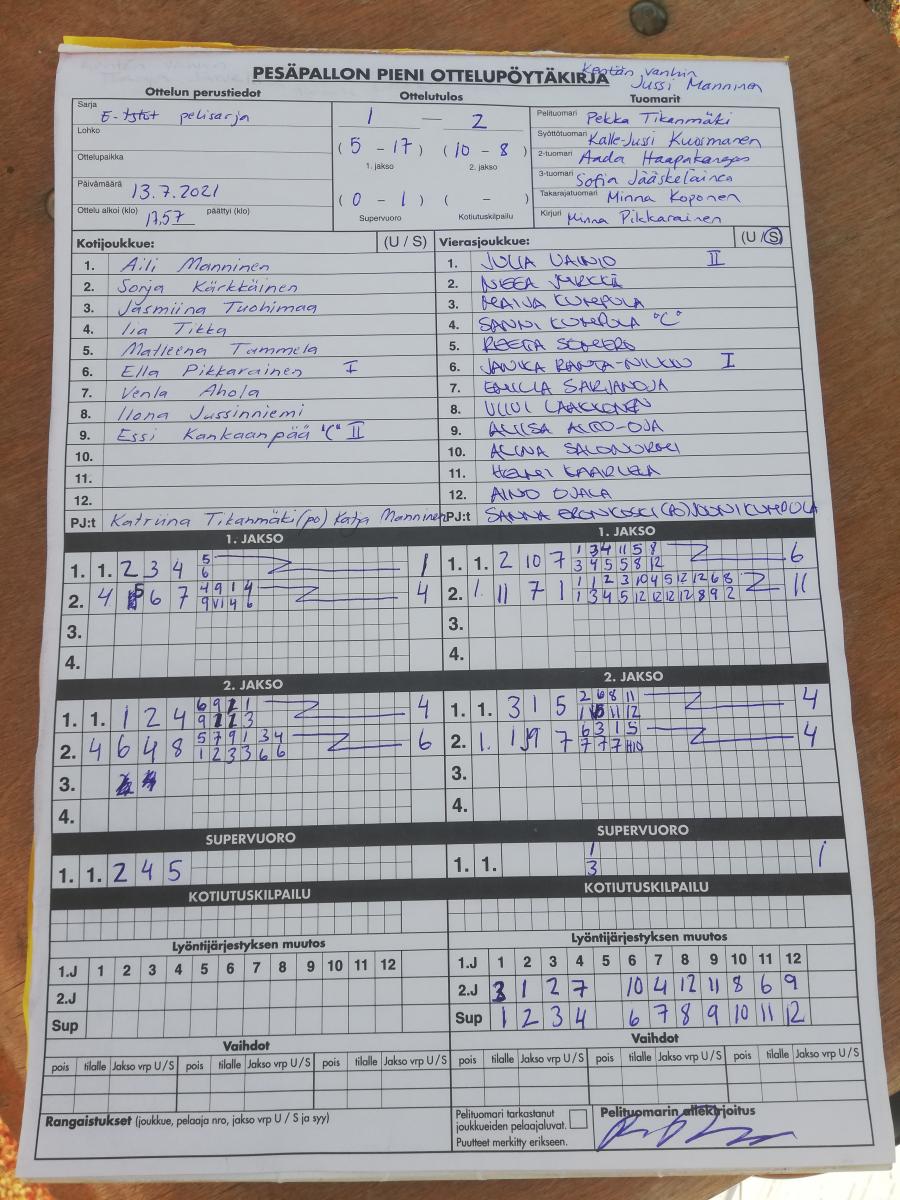 Kentän vanhin
PESÄPALLON PIENI OTTELUPÖYTÄKIRJA Jussi Manninen
Ottelun perustiedot Ottelutulos Tuomarit
Sarja E-tytöt pelisarja
1 — 2
Pelituomari Pekka Tikanmäki
Lohko
(5 - 17) (10 - 8)
Syöttötuomari Kalle-Jussi Kuosmanen
1. jakso 2. jakso
Ottelupaikka
2-tuomari Aada Haapakangas
3-tuomari Sofia Jääskeläinen
Päivämäärä 13.7.2021
(0 - 1) ( - )
Takarajatuomari Minna Koponen
Ottelu alkoi (klo) 17.57 päättyi (klo)
Supervuoro Kotiutuskilpailu
Kirjuri Minna Pikkarainen
Kotijoukkue: (U / S) Vierasjoukkue: (U / S)
1. Aili Manninen 1. JULIA VAINIO II
2. Sonja Kärkkäinen 2. NEEA
3. Jasmiina Tuohimaa 3. MAIJA KUMPULA
4. Iia Tikka 4. SANNI KUMPULA "C"
5. Matleena Tammela 5. REETA
6. Ella Pikkarainen I 6. JANIKA RANTA-NILKKU I
7. Venla Ahola 7. EMILIA SARJANOJA
8. Ilona Jussinniemi 8. LAAKKONEN
9. Essi Kankaanpää "C" II 9. ALIISA AUTO-OJA
10. 10. ALINA
11. 11. HENNI KAARLELA
12. 12. AINO OJALA
PJ:t Katriina Tikanmäki (po) Katja Manninen PJ:t SANNA ERONKOSKI (PO) JOONI KUMPULA
1. JAKSO 1. JAKSO
1. 1. 2 3 4 5 1 1. 1. 2 10 7 1 3 4 11 5 8 6
6 3 4 5 5 8 12
2. 4 5 6 7 4 9 1 4 4 2. 1. 11 7 1 1 1 2 3 10 4 5 12 12 6 8 11
9 VI 4 6 1 3 4 5 12 12 12 12 8 9 2
3. 3.
4. 4.
2. JAKSO 2. JAKSO
1. 1. 1 2 4 6 9 2 1 4 1. 1. 3 1 5 2 6 8 11 4
9 2 2 3 11 12
2. 4 6 4 8 5 7 9 1 3 4 6 2. 1. 1 9 7 6 3 1 5 4
1 2 3 3 6 6 7 7 7 10
3. 3.
4. 4.
SUPERVUORO SUPERVUORO
1. 1. 2 4 5 1. 1. 1 1
3
KOTIUTUSKILPAILU KOTIUTUSKILPAILU
Lyöntijärjestyksen muutos Lyöntijärjestyksen muutos
1.J 1 2 3 4 5 6 7 8 9 10 11 12 1.J 1 2 3 4 5 6 7 8 9 10 11 12
2.J 2.J 3 1 2 7 10 4 12 11 8 6 9
Sup Sup 1 2 3 4 6 7 8 9 10 11 12
Vaihdot Vaihdot
pois tilalle Jakso vrp U / S pois tilalle Jakso vrp U / S pois tilalle Jakso vrp U / S pois tilalle Jakso vrp U / S pois tilalle Jakso vrp U / S pois tilalle Jakso vrp U / S
Rangaistukset (joukkue, pelaaja nro, jakso vrp U / S ja syy)
Pelituomari tarkastanut
joukkueiden pelaajaluvat.
Puutteet merkitty erikseen.
Pelituomarin allekirjoitus